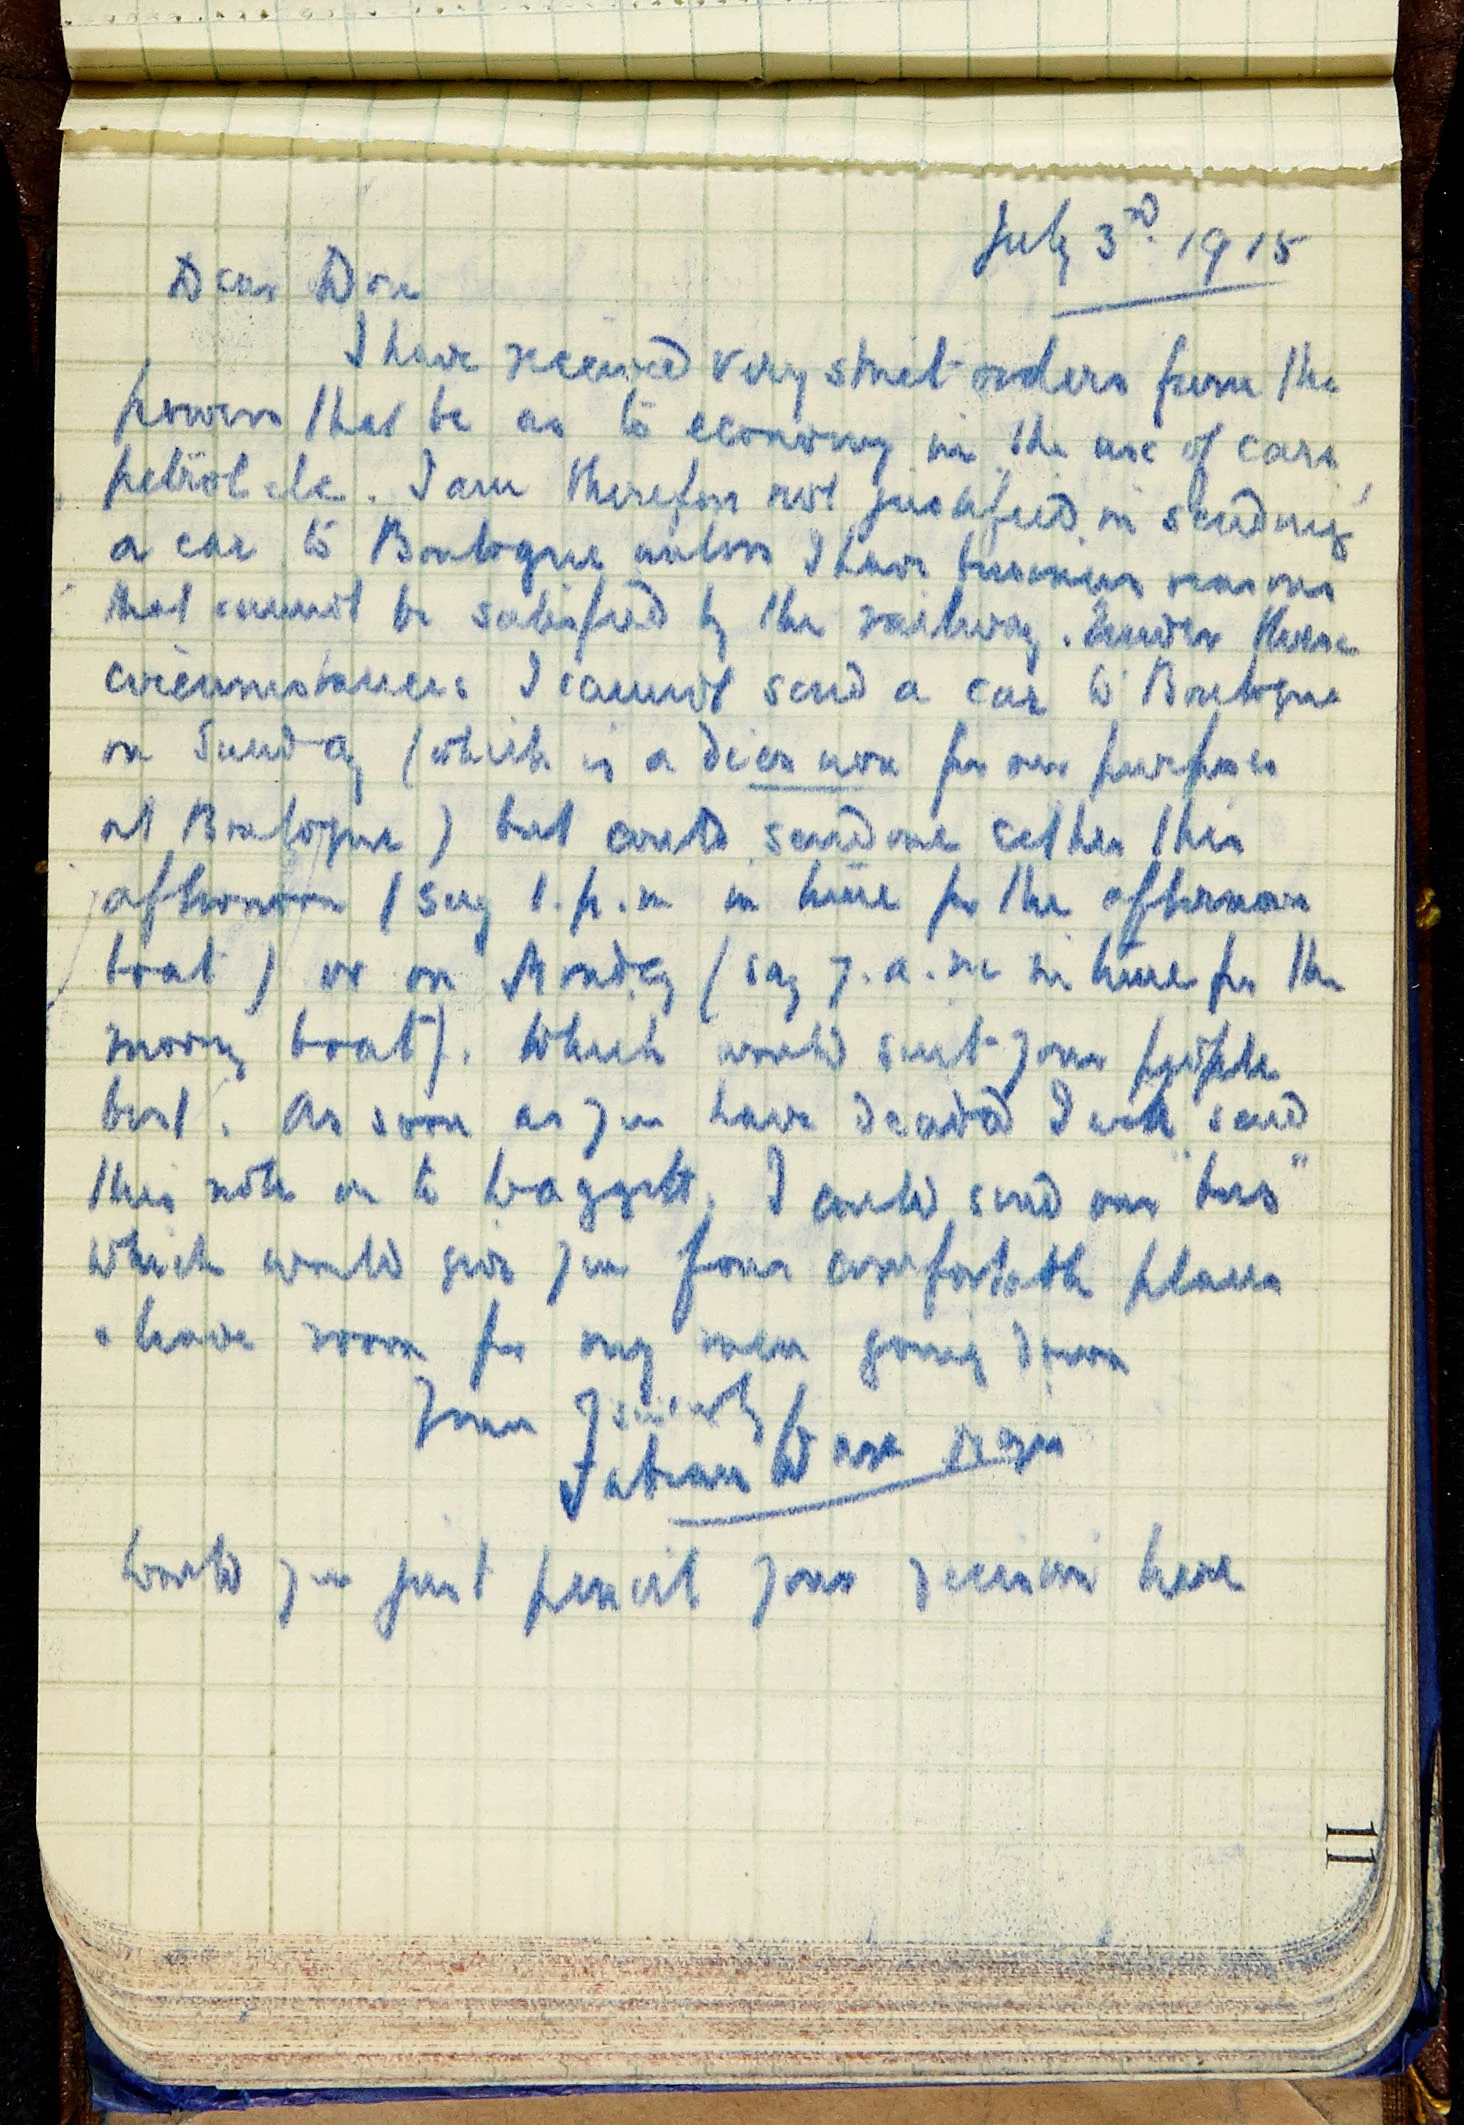 July 3rd. 1915
Dear Don
I have received very strict orders from the
powers that be as to economy in the use of cars,
petrol etc. I am therefore not justified in sending
a car to Boulogne unless I have business reasons
that cannot be satisfied by the railway. Under these
circumstances I cannot send a car to Boulogne
on Sunday (which is a dies non for our purposes
at Boulogne) but could send one either this
afternoon (say 1.p.m in time for the afternoon
boat) or on Monday (say 7.a.m in time for the
morng boat). Which would suit your people
best. As soon as you have decided I will send
this note on to Waggett. I could send our "bus"
which would give you four comfortable places
& leave room for my men going down
Yours sincerely
Fabian Ware
Would you just pencil your decision here
11